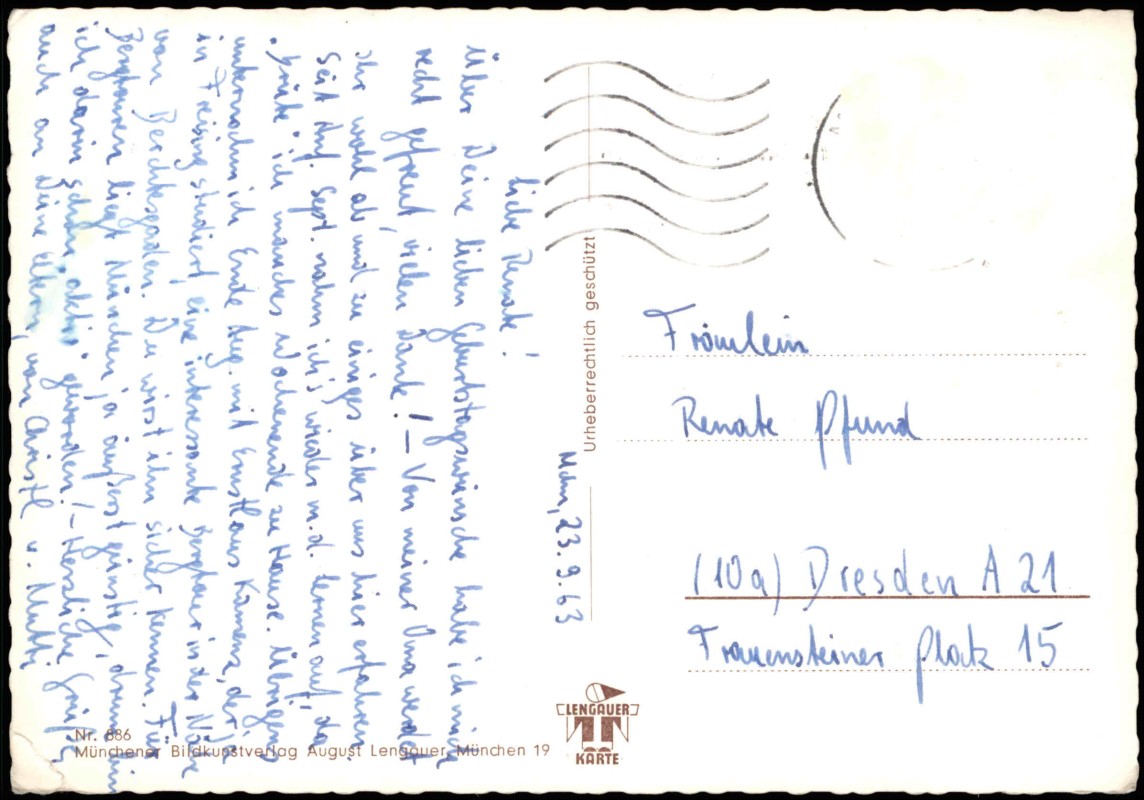 Mchn, 23.9.63
Liebe Renate!
Über Deine lieben Geburtstagswünsche habe ich mich
recht gefreut, vielen Dank! – Von meiner Oma werdet
ihr wohl ab und zu einiges über uns hier erfahren.
Seit Anf. Sept. nahm ich's wieder m.d. Lernen auf, da
"brüte" ich manches Wochenende zu Hause. Übrigens
unternahm ich Ende Aug. mit Ernst aus Kamenz, der
in Freising studiert eine interessante Bergtour in der Nähe
von Berchtesgaden. Du wirst ihn sicher kennen. Für
Bergtouren liegt München ja äußerst günstig, drum bin
ich darin schon "aktiv" geworden! – Herzliche Grüße
auch an Deine Eltern, von Christl u. Mutti
Urheberrechtlich geschützt
Fräulein
Renate Pfund
(10a) Dresden A 21
Frauensteiner Platz 15
LENGAUER
KARTE
Nr. 886
Münchener Bildkunstverlag August Lengauer, München 19